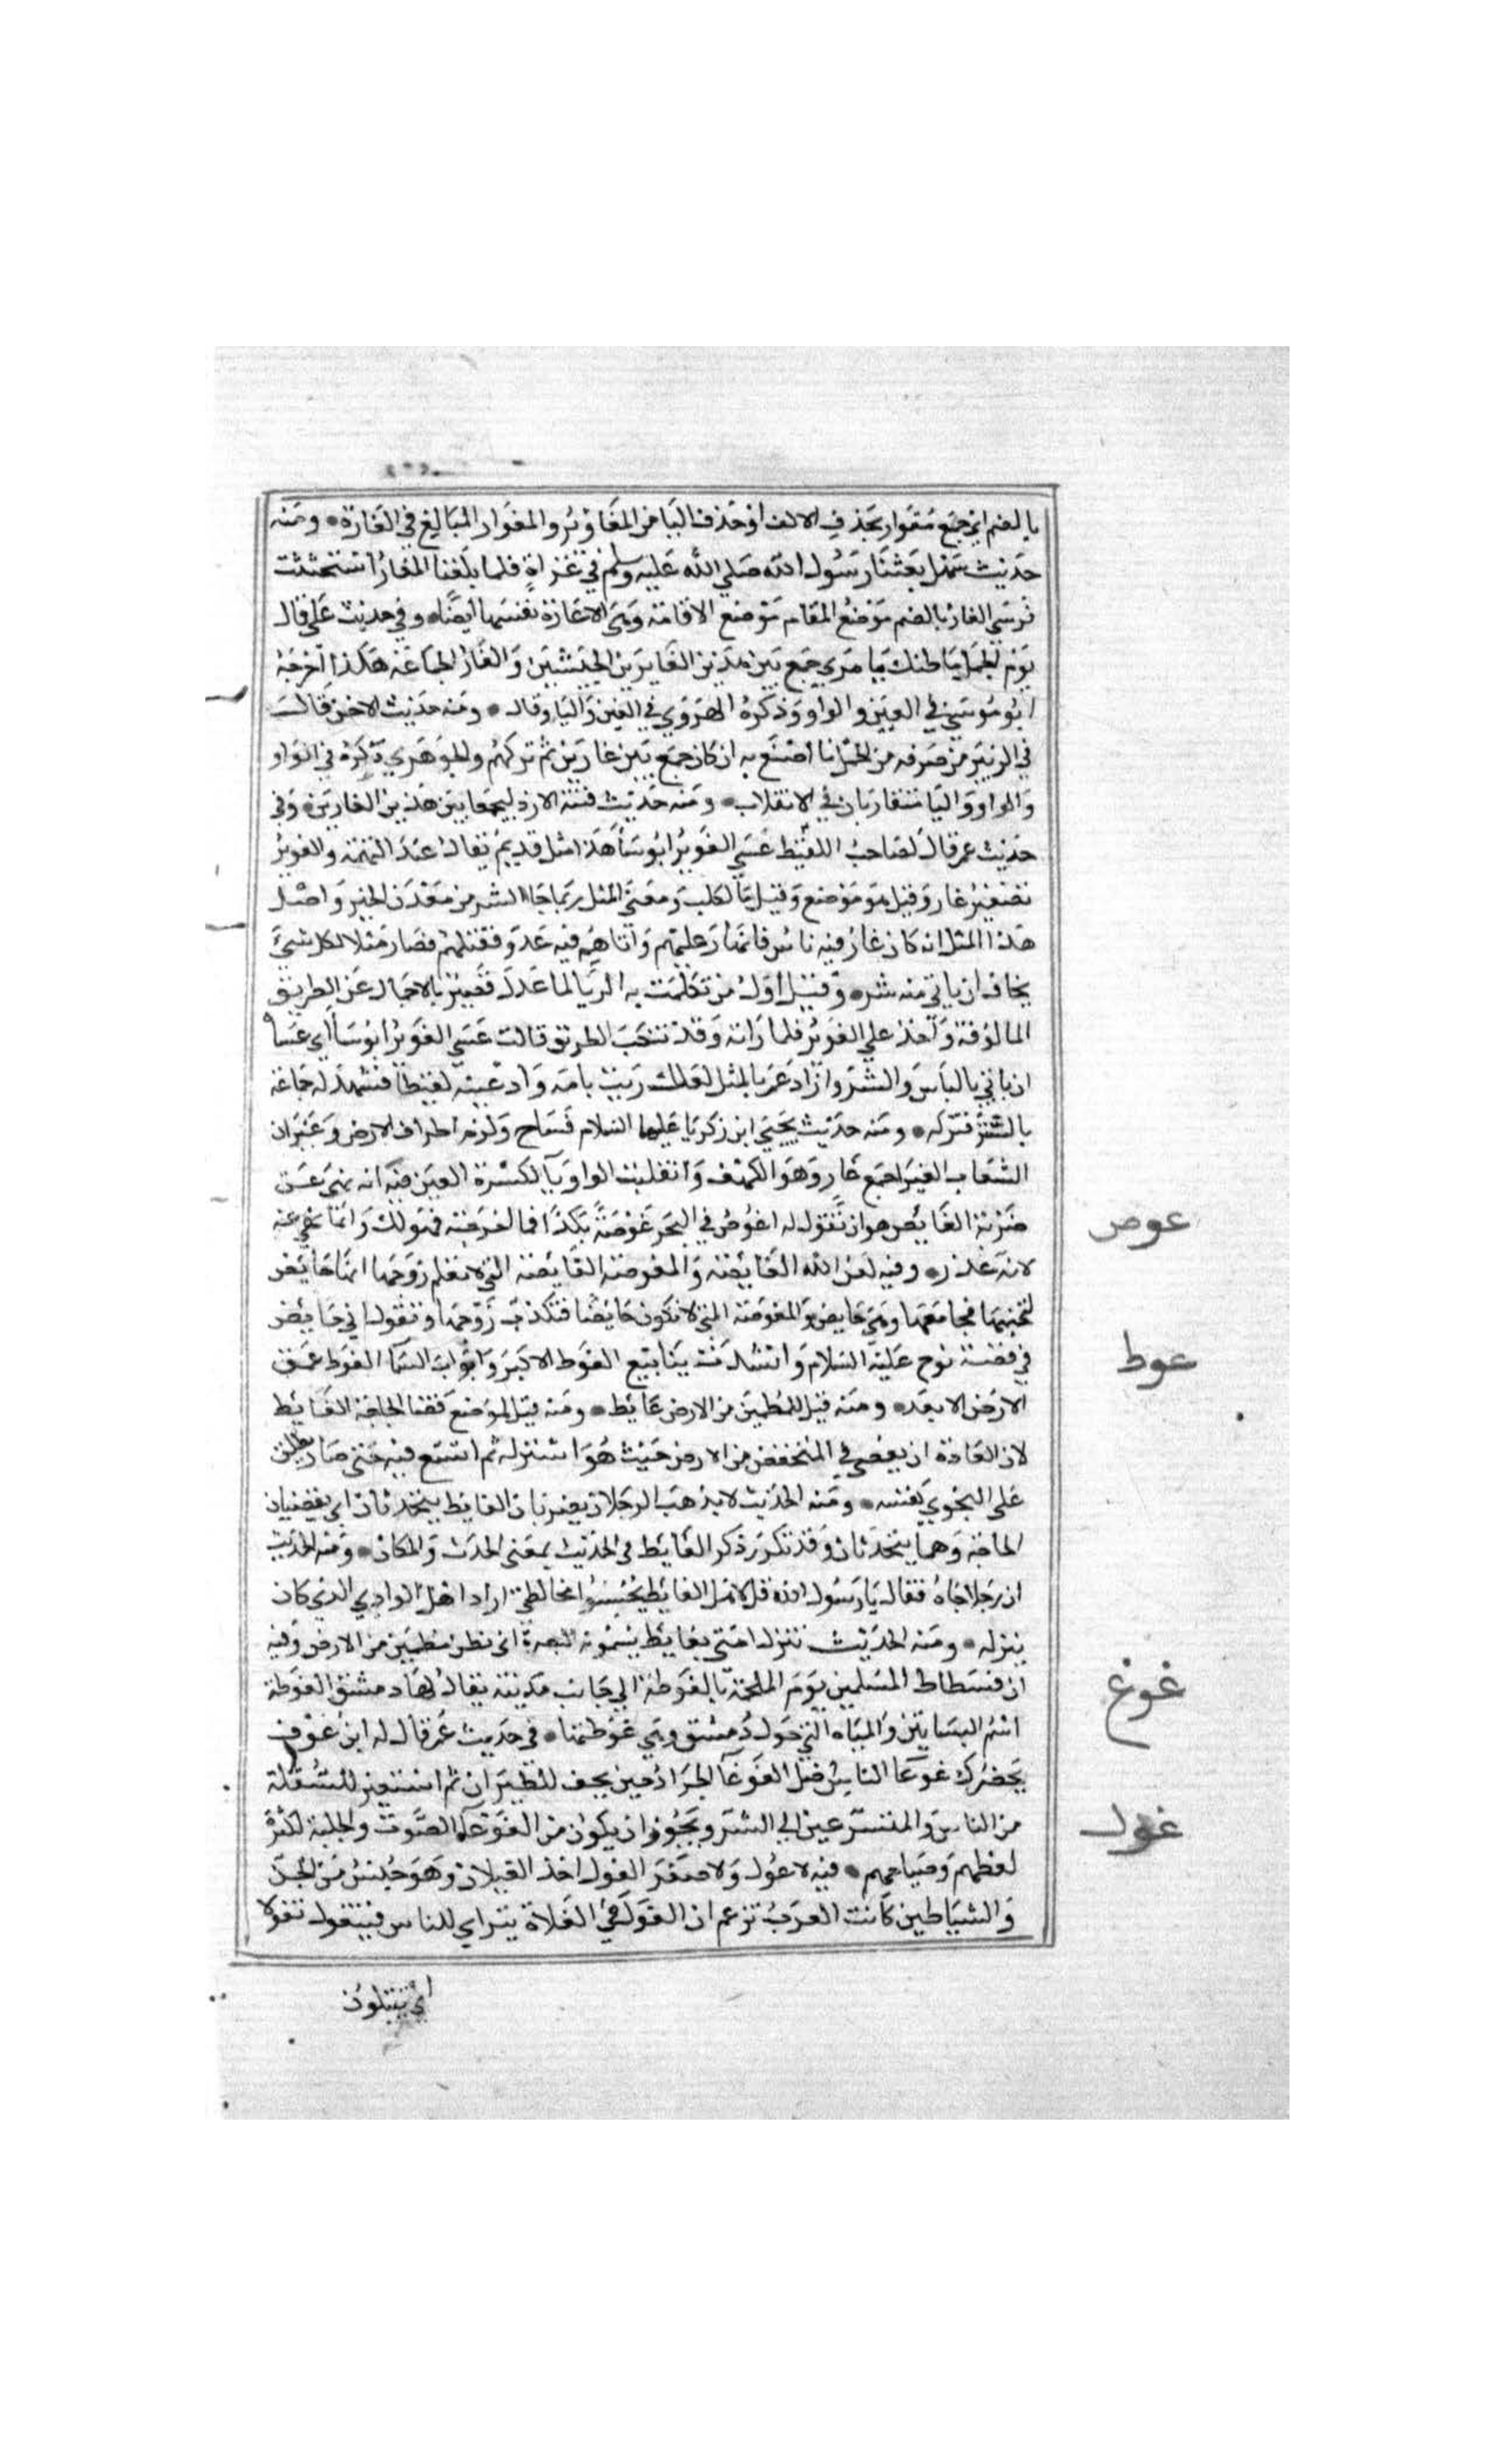 بالضم اي جمع مغوار بحذف الالف او حذف اليا من المغاوير والمغوار المبالغ في الغارة ٠ ومنه
حديث سهل بعثنا رسول الله صلي الله عليه وسلم في غزاة فلما بلغنا المغار استحثثت
فرسي المغار بالضم موضع المقام موضع الاقامة وهي الاغارة نفسها ايضاه وفي حديث علي قال
يوم الجمل ما ظنك بامري جمع بين هذين الغارين اي الجيشين والغار الجماعة هكذا اخرجه
ابو موسي في الغين والواو وذكره الهروي في الغين واليا وقال ٠ ومنه حديث الاحنف قال
في الزبير من صرفه من الجمل ما اصنع به ان كان جمع بين غارين ثم تركهم والجوهري ذكره في الواو
والواو واليا متقاربان في الانقلاب ٠ ومنه حديث فتنة الازد ليجمعا بين هذين الغارين ٠ وفي
حديث عمر قال لصاحب اللقيط عسي الغوير ابوسا هذا مثل قديم يقال عند التهمة والغوير
تصغير غار وقيل هو موضع وقيل ما لكلب ومعني المثل ربما جا الشر من معدن الخير واصل
هذا المثل انه كان غار فيه ناس فانهار عليهم واتاهم فيه عدو فقتلهم فصار مثلا لكل شيء
يخاف ان ياتي منه شر ٠ وقيل اول من تكلمت به الزبا لما عدل قصير بالاحمال عن الطريق
المالوفة واخذ علي الغوير فلما راته وقد تنكب الطريق قالت عسي الغوير ابوسا اي عساه
ان ياتي بالباس والشر واراد عمر بالمثل لعلك زنيت بامه وادعيته لقيطا فشهد له جماعة
بالستر فتركه ٠ ومنه حديث يحيي ابن زكريا عليهما السلام فساح ولزم اطراف الارض وغيران
الشعاب الغيران جمع غار وهو الكهف وانقلبت الواو يا لكسرة الغين فيه انه نهي عن
ضربة الغائص هو ان تقول له اغوص في البحر غوصة بكذا فما اخرجته فهو لك وانما نهي عنه
لانه غرر ٠ وفيه لعن الله الغائصة والمغوصة الغائصة التي لا تعلم زوجها انها حائض
لتجنبها فجامعها وهي حايض والمغوصة التي لا تكون حائضا فتكذب زوجها وتقول اني حايض
في قصة نوح عليه السلام وانسدت ينابيع الغوط الاكبر وابواب السما الغوط عمق
الارض الابعد ٠ ومنه قيل للمطمين من الارض غايط ٠ ومنه قيل لموضع قضا الحاجة الغايط
لان العادة ان يقضي في المنخفض من الارض حيث هو استر له ثم اتسع فيه حتي صار يطلق
علي النجو نفسه ٠ ومنه الحديث لا يذهب الرجلان يضربان الغايط يتحدثان اي يقضيان
الحاجة وهما يتحدثان وقد تكرر ذكر الغايط في الحديث بمعني الحدث والمكان ٠ ومنه الحديث
ان رجلا جاه فقال يا رسول الله قل لاهل الغايط يحسنوا مخالطتي اراد اهل الوادي الذي كان
ينزله ٠ ومنه الحديث تنزل امتي بغايط يسمونه البصرة اي بطن مطمين من الارض وفيه
ان فسطاط المسلمين يوم الملحمة بالغوطة الي جانب مدينة يقال لها دمشق الغوطة
اسم البساتين والمياه التي حول دمشق وهي غوطتها ٠ في حديث عمر قال له ابن عوف
يحضرك غوغا الناس اصل الغوغا الجراد حين يخف للطيران ثم استعير للسفلة
من الناس والمتسرعين الي الشر ويجوز ان يكون من الغوغا الصوت والجلبة لكثرة
لغطهم وصياحهم ٠ فيه لا غول ولا صفر الغول احد الغيلان وهو جنس من الجن
والشياطين كانت العرب تزعم ان الغول في الفلاة يتراي للناس فيتغول تغولا
اي يتلون
عوص
عوط
غوغ
غول